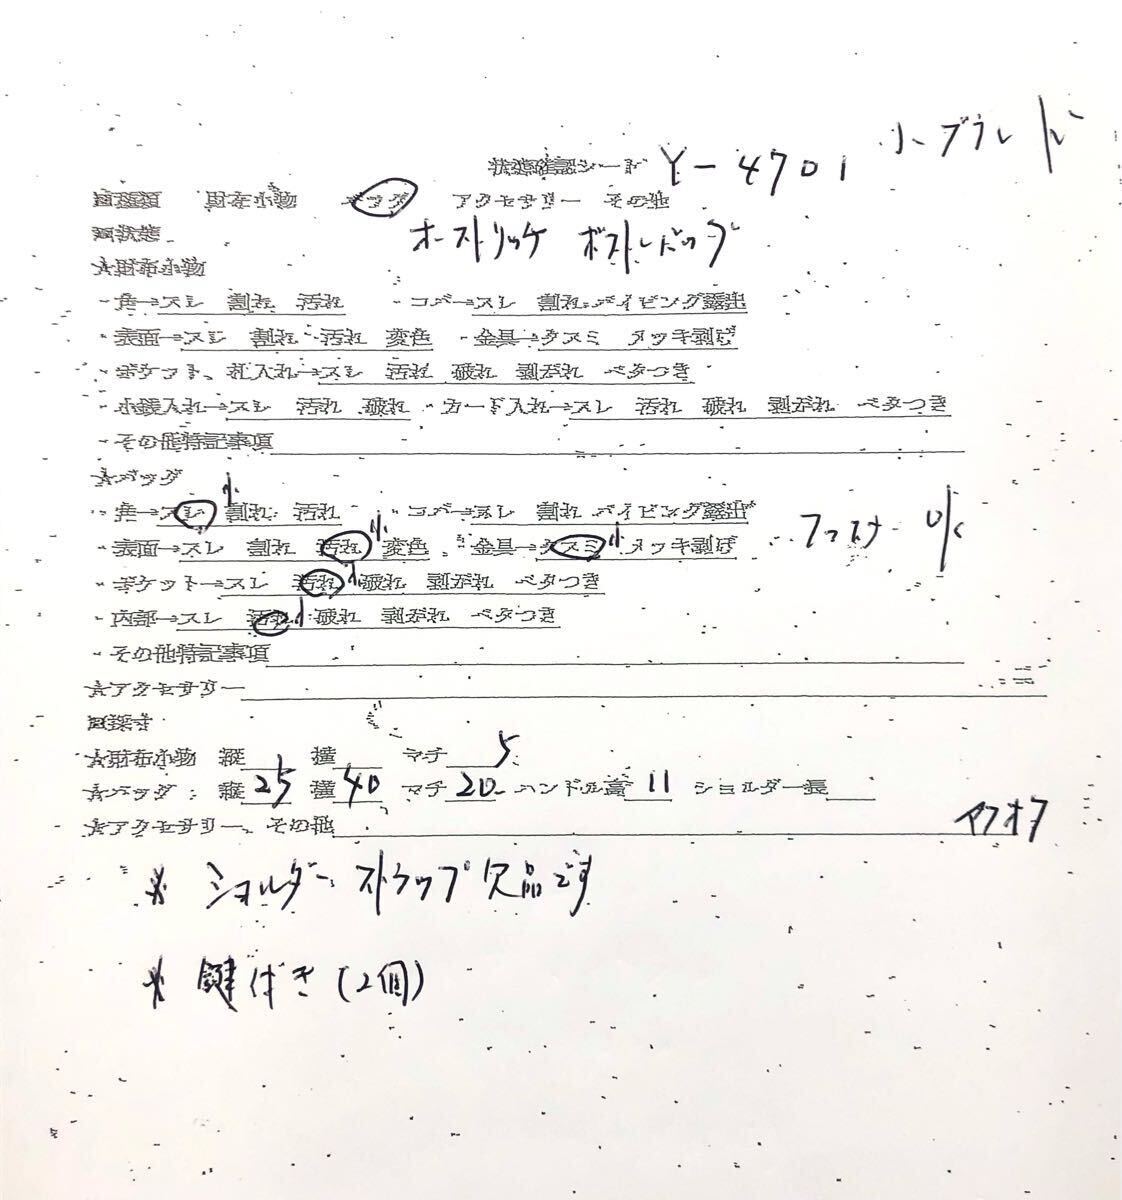 小ブランド
状態確認シート Y-4701
■種類 財布小物 バッグ アクセサリー その他
■状態 オーストリッチ ボストンバッグ
☆財布小物
・角→スレ 割れ 汚れ ・コバ→スレ 割れ パイピング露出
・表面→スレ 割れ 汚れ 変色 ・金具→クスミ メッキ剥げ
・ポケット、札入れ→スレ 汚れ 破れ 剥がれ ベタつき
・小銭入れ→スレ 汚れ 破れ ・カード入れ→スレ 汚れ 破れ 剥がれ ベタつき
・その他特記事項
☆バッグ
・角→スレ 小 割れ 汚れ ・コバ→スレ 割れ パイピング露出
・表面→スレ 割れ 汚れ 小 変色 ・金具→クスミ 小 メッキ剥げ ファスナー OK
・ポケット→スレ 汚れ 小 破れ 剥がれ ベタつき
・内部→スレ 汚れ 小 破れ 剥がれ ベタつき
・その他特記事項
☆アクセサリー
■採寸
☆財布小物 縦 横 マチ 5
☆バッグ 縦 25 横 40 マチ 20 ハンドル高 11 ショルダー長
☆アクセサリー、その他 ヤフオク
※ ショルダーストラップ欠品です
※ 鍵付き(2個)